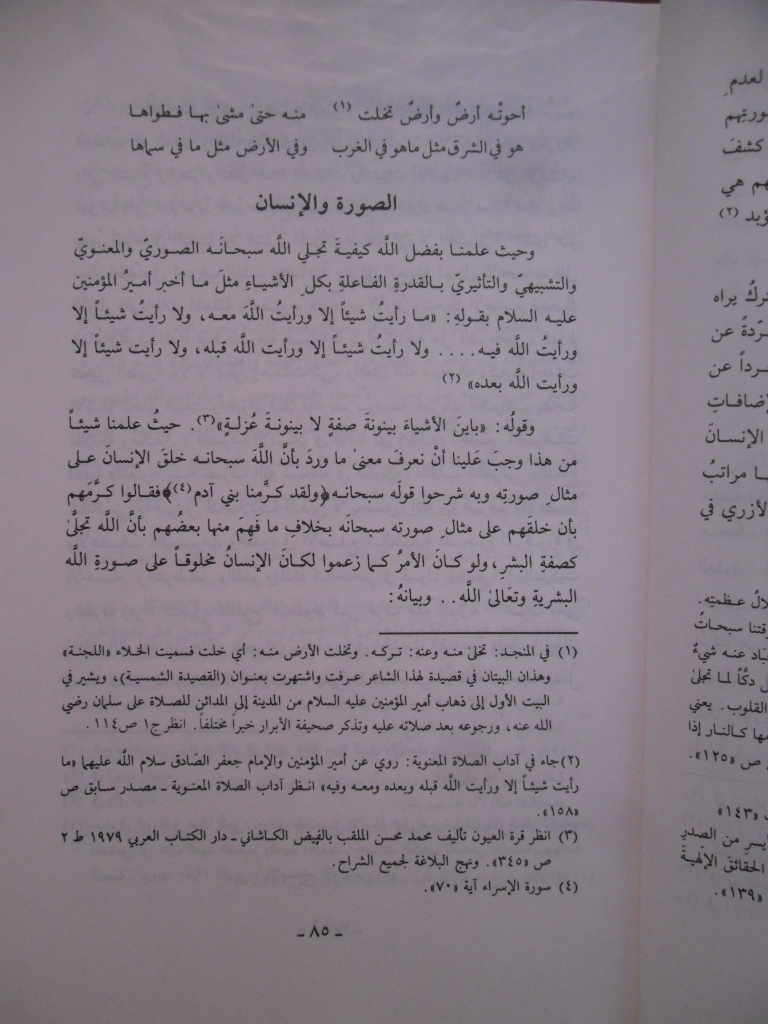 أحوتْه أرضٌ وأرضٌ تخلت (١) منه حتىٰ مشىٰ بها فطواها
هو في الشرق مثل ماهو في الغرب وفي الأرض مثل ما في سماها
الصورة والإنسان
وحيث علمنا بفضل الله كيفيةَ تجلي الله سبحانَه الصوريّ والمعنويّ
والتشبيهيّ والتأثيريّ بالقدرةِ الفاعلةِ بكلِ الأشياءِ مثلَ ما أخبر أميرُ المؤمنين
عليه السلام بقولهِ: «ما رأيتُ شيئاً إلا ورأيتُ اللَّهَ معه، ولا رأيتُ شيئاً إلا
ورأيتُ الله فيه.... ولا رأيتُ شيئاً إلا ورأيت الله قبله، ولا رأيت شيئاً إلا
ورأيت الله بعده» (٢)
وقولُه: «باينَ الأشياءَ بينونةَ صفةٍ لا بينونةَ عُزلةٍ»(٣). حيثُ علمنا شيئاً
من هذا وجبَ عَلينا أنْ نعرفَ معنىٰ ما وردَ بأنَّ اللَّهَ سبحانه خلقَ الإنسانَ على
مثالِ صورتِه وبه شرحوا قولَه سبحانه﴿ولقد كرَّمنا بني آدم(٤)﴾فقالوا كرَّمَهم
بأن خلقَهم على مثالِ صورته سبحانَه بخلافِ ما فَهِمَ منها بعضُهم بأنَّ الله تجلَّىٰ
كصفةِ البشرِ، ولو كانَ الأمرُ كما زعموا لكانَ الإنسانُ مخلوقاً على صورةِ الله
البشريةِ وتعَالىٰ الله.. وبيانهُ:
(١) في المنجد: تخلىٰ منه وعنه: تركه. وتخلت الأرض منه: أي خلت فسميت الخلاء «اللجنة»
وهذان البيتان في قصيدة لهذا الشاعر عرفت واشتهرت بعنوان (القصيدة الشمسية)، ويشير في
البيت الأول إلى ذهاب أمير المؤمنين عليه السلام من المدينة إلى المدائن للصلاة على سلمان رضي
الله عنه، ورجوعه بعد صلاته عليه وتذكر صحيفة الأبرار خبراً مختلفاً. انظر ج١ ص١١٤.
(٢)جاء في آداب الصلاة المعنوية: روي عن أمير المؤمنين والإمام جعفر الصَادق سلام الله عليهما «ما
رأيت شيئاً إلا ورأيت الله قبله وبعده ومعه وفيه» انظر آداب الصلاة المعنوية ـ مصدر سابق ص
«١٥٨».
(٣) انظر قرة العيون تأليف محمد محسن الملقب بالفيض الكاشاني ـ دار الكتاب العربي ١٩٧٩ ط ٢
ص «٣٤٥». ونهج البلاغة لجميع الشراح.
(٤) سورة الإسراء آية «٧٠».
ـ ٨٥ ـ
لعدمِ
ورتِهم
كشفَ
هم هي
ؤبد (٢)
ركُ يراه
رّدةً عن
رداً عن
إضافاتِ
الإنسانَ
ـا مراتبُ
لأزري في
لالُ عظمتِه.
رقتنا سبحاتُ
ـبَاد عنه شيءُ
ل دكّاً لما تجلىٰ
القلوب. يعني
مها كالنار إذا
ص «١٢٥».
«١٤٣»
يسرِ من الصِدرِ
الحقائقَ الإلهيةَ
«١٣٩».